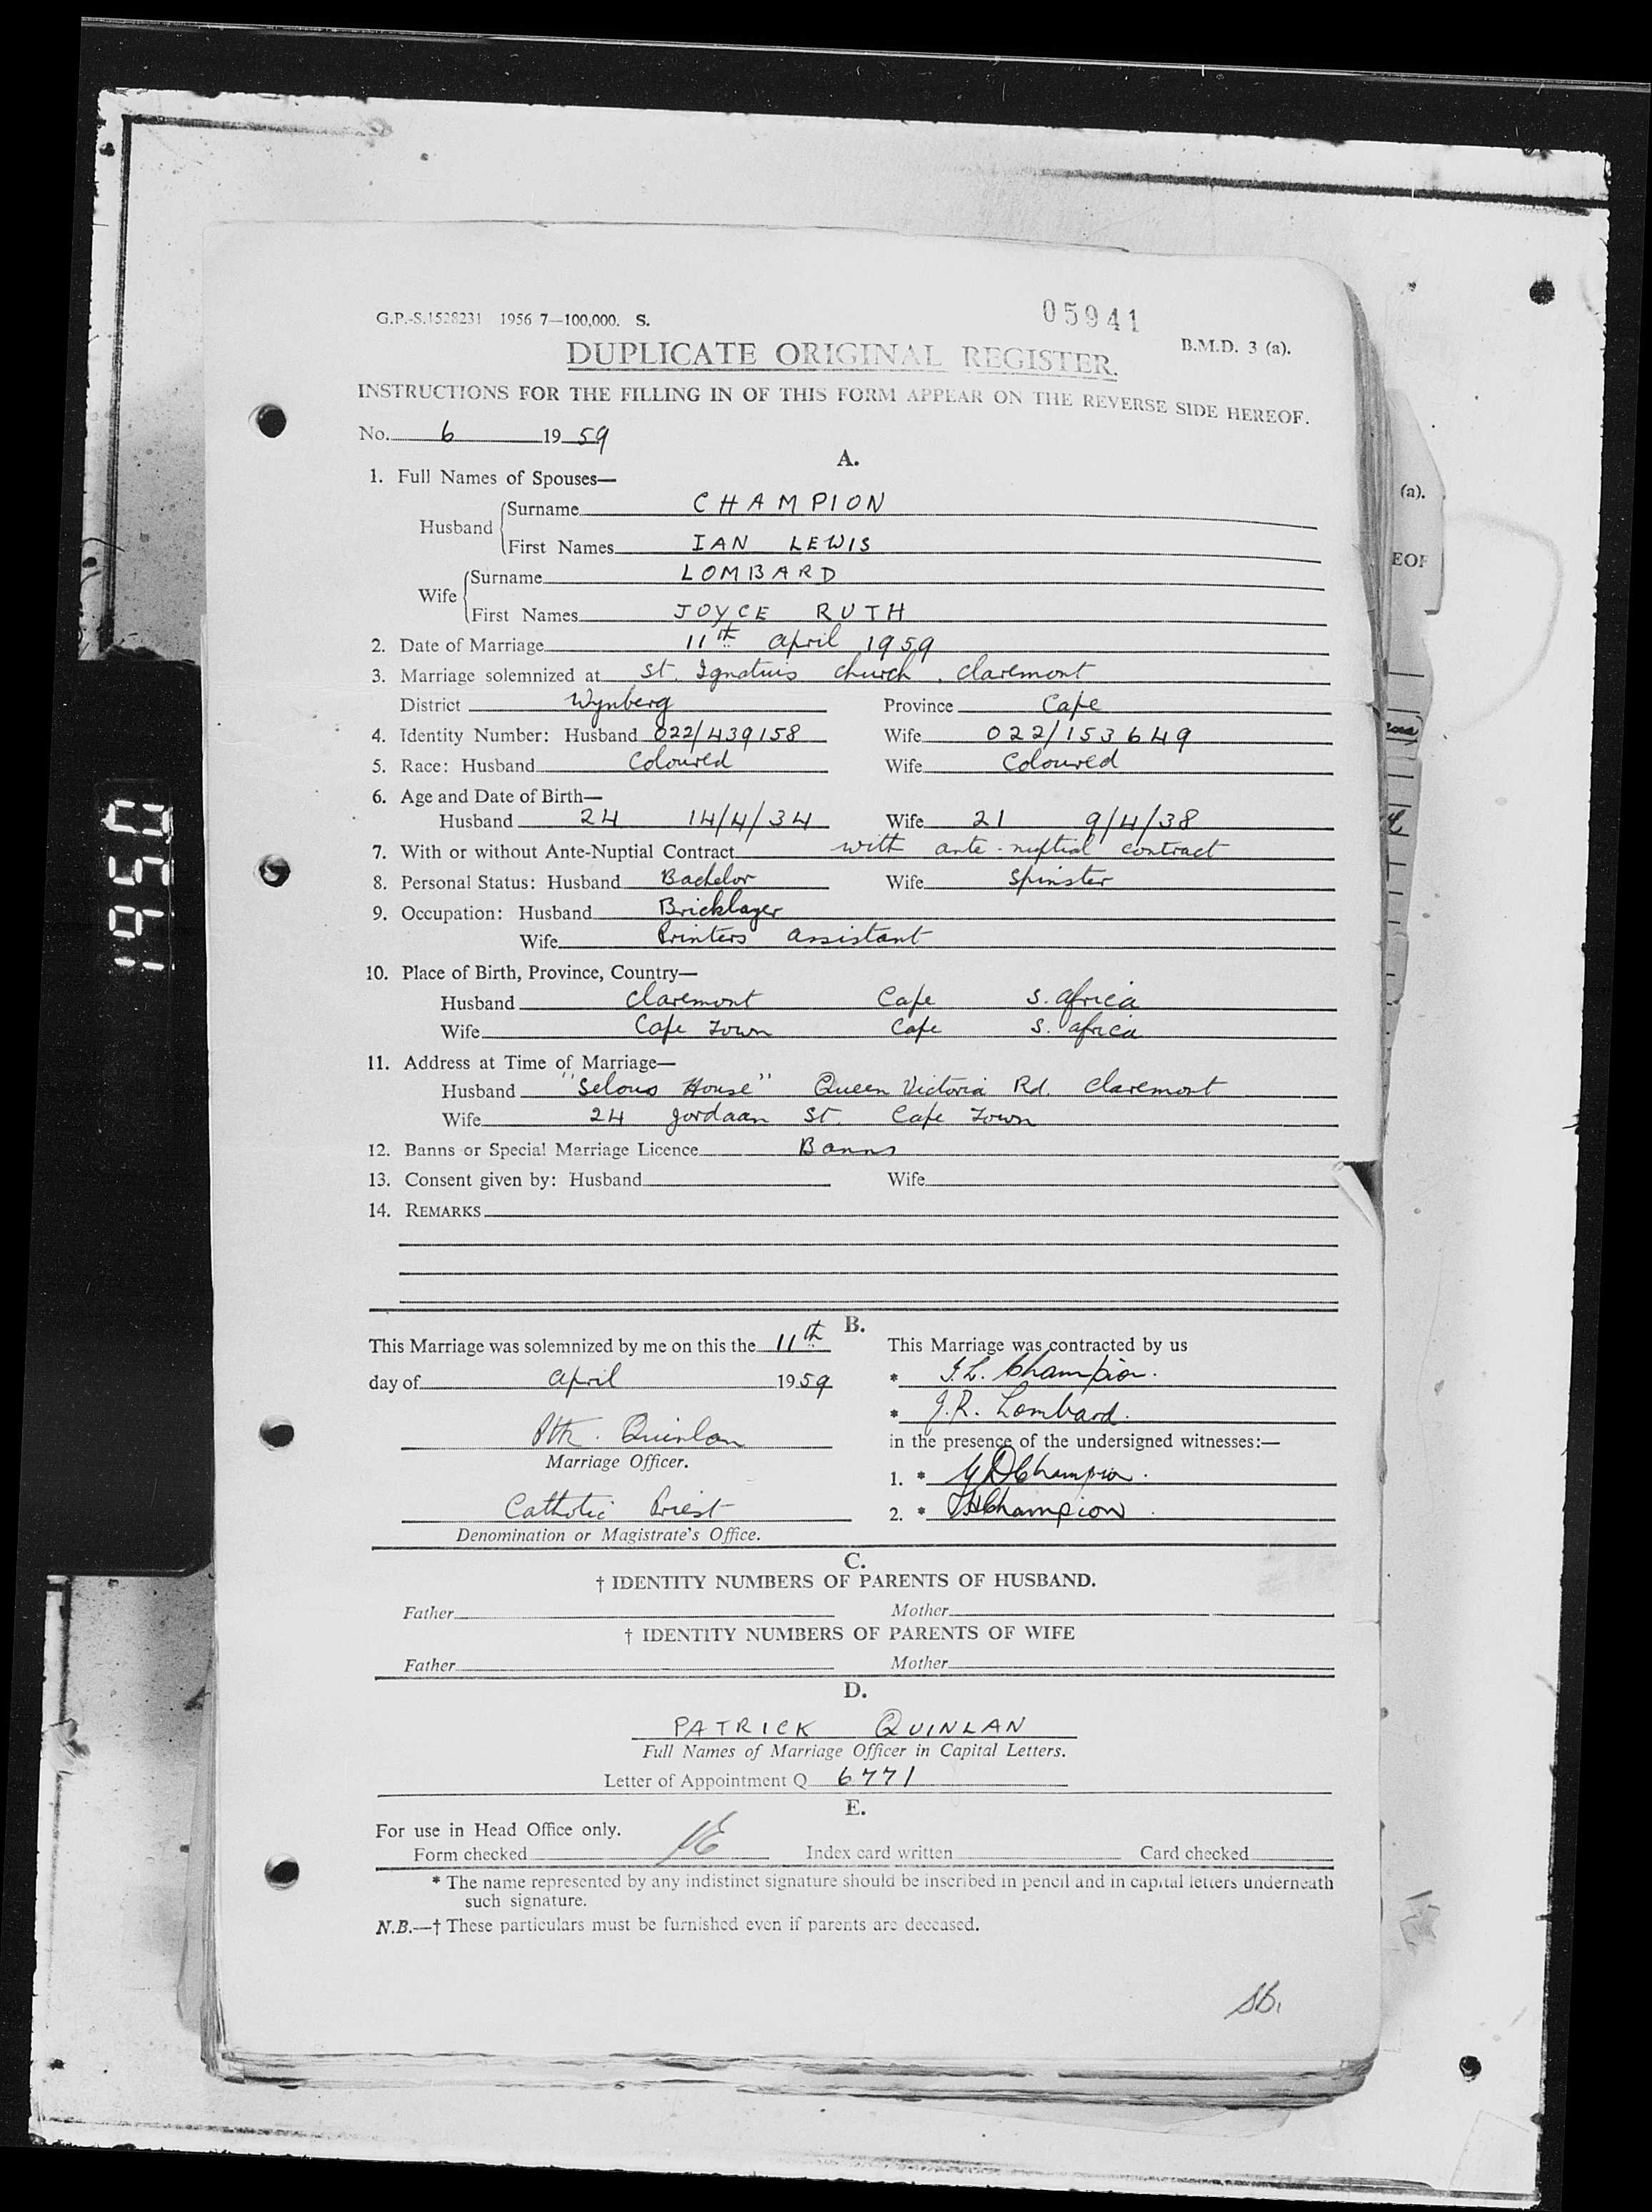 05941
G.P.-S.1528231 1956 7—100,000. S.
B.M.D. 3 (a).
DUPLICATE ORIGINAL REGISTER.
INSTRUCTIONS FOR THE FILLING IN OF THIS FORM APPEAR ON THE REVERSE SIDE HEREOF.
No. 6 1959
A.
1. Full Names of Spouses—
Husband
Surname CHAMPION
First Names IAN LEWIS
Wife
Surname LOMBARD
First Names JOYCE RUTH
2. Date of Marriage 11th April 1959
3. Marriage solemnized at St. Ignatius Church, Claremont
District Wynberg Province Cape
4. Identity Number: Husband 022/439158 Wife 022/153649
5. Race: Husband Coloured Wife Coloured
6. Age and Date of Birth—
Husband 24 14/4/34 Wife 21 9/4/38
7. With or without Ante-Nuptial Contract with ante-nuptial contract
8. Personal Status: Husband Bachelor Wife Spinster
9. Occupation: Husband Bricklayer
Wife Printers assistant
10. Place of Birth, Province, Country—
Husband Claremont Cape S. Africa
Wife Cape Town Cape S. Africa
11. Address at Time of Marriage—
Husband "Selous House" Queen Victoria Rd. Claremont
Wife 24 Jordaan St. Cape Town
12. Banns or Special Marriage Licence Banns
13. Consent given by: Husband Wife
14. REMARKS
B.
This Marriage was solemnized by me on this the 11th
day of April 1959
Ptk. Quinlan
Marriage Officer.
Catholic Priest
Denomination or Magistrate's Office.
This Marriage was contracted by us
* I.L. Champion.
* J.R. Lombard.
in the presence of the undersigned witnesses:—
1. * Champion.
2. * Champion.
C.
† IDENTITY NUMBERS OF PARENTS OF HUSBAND.
Father Mother
† IDENTITY NUMBERS OF PARENTS OF WIFE
Father Mother
D.
PATRICK QUINLAN
Full Names of Marriage Officer in Capital Letters.
Letter of Appointment Q 6771
E.
For use in Head Office only.
Form checked Index card written Card checked
* The name represented by any indistinct signature should be inscribed in pencil and in capital letters underneath
such signature.
N.B.—† These particulars must be furnished even if parents are deceased.
(a).
EOF
1950